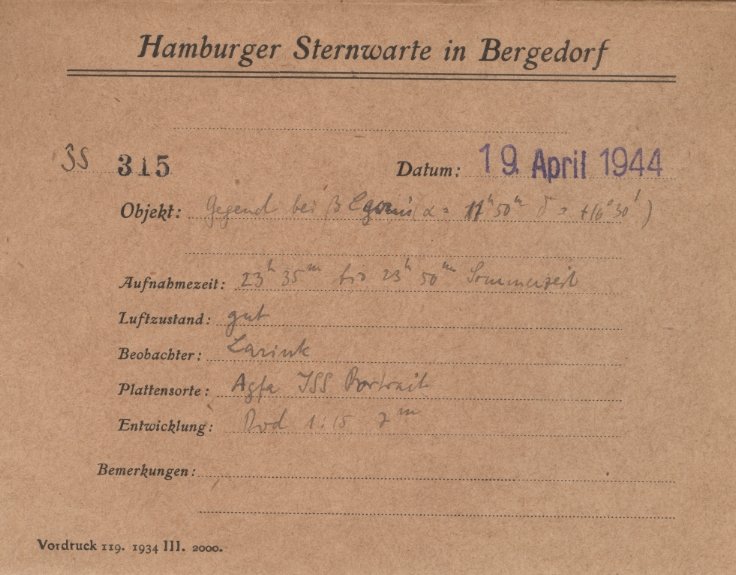 Hamburger Sternwarte in Bergedorf
SS 315 Datum: 19. April 1944
Objekt: Gegend bei β Leonis (α = 11ʰ 50ᵐ δ = +16° 30')
Aufnahmezeit: 23ʰ 35ᵐ bis 23ʰ 50ᵐ Sommerzeit
Luftzustand: gut
Beobachter: Larink
Plattensorte: Agfa ISS Portrait
Entwicklung: Rod 1:15 7ᵐ
Bemerkungen:
Vordruck 119. 1934 III. 2000.